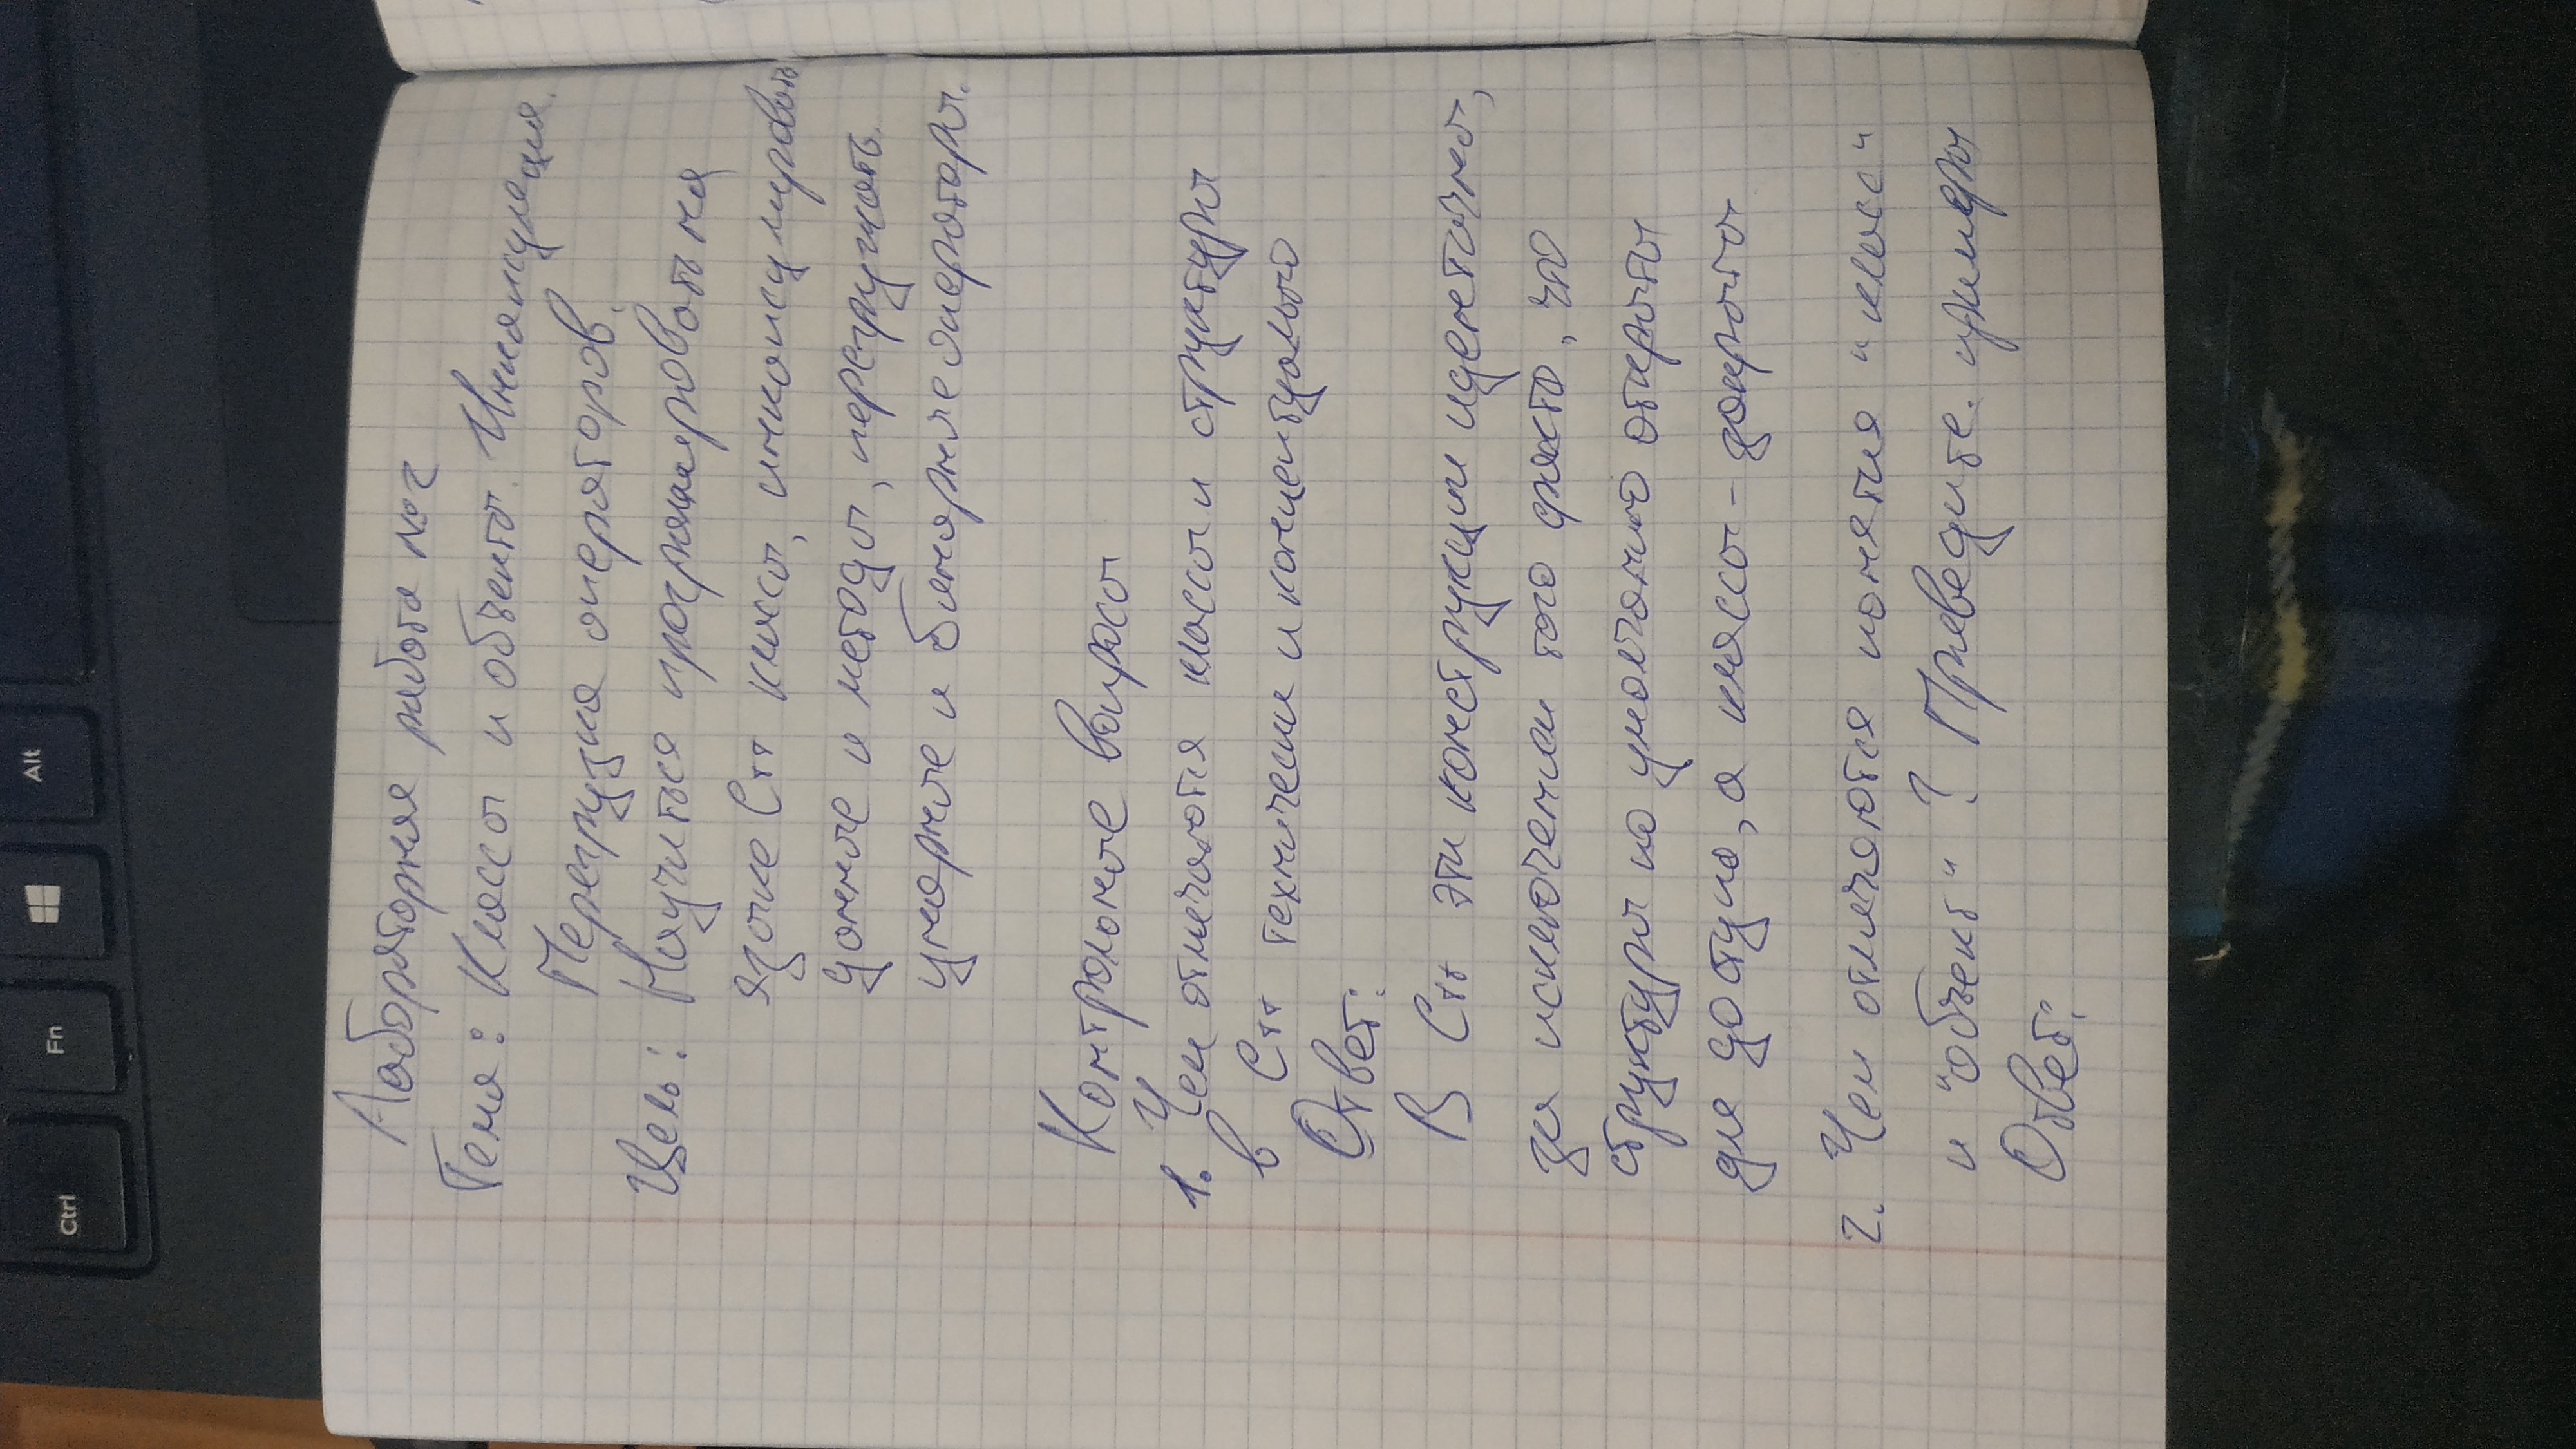 Ctrl
Fn
Alt
Лабораторная работа №2
Тема: Классы и объекты. Инкапсуляция.
Перегрузка операторов.
Цель: Научиться программировать на
языке C++ классы, инкапсулировать
данные и методы, перегружать
унарные и бинарные операторы.
Контрольные вопросы
1. Чем отличаются классы и структуры
в C++ технически и концептуально
Ответ:
В C++ эти конструкции идентичны,
за исключением того факта, что
структуры по умолчанию открыты
для доступа, а классы - закрыты
2. Чем отличаются понятия "класс"
и "объект"? Приведите примеры
Ответ: